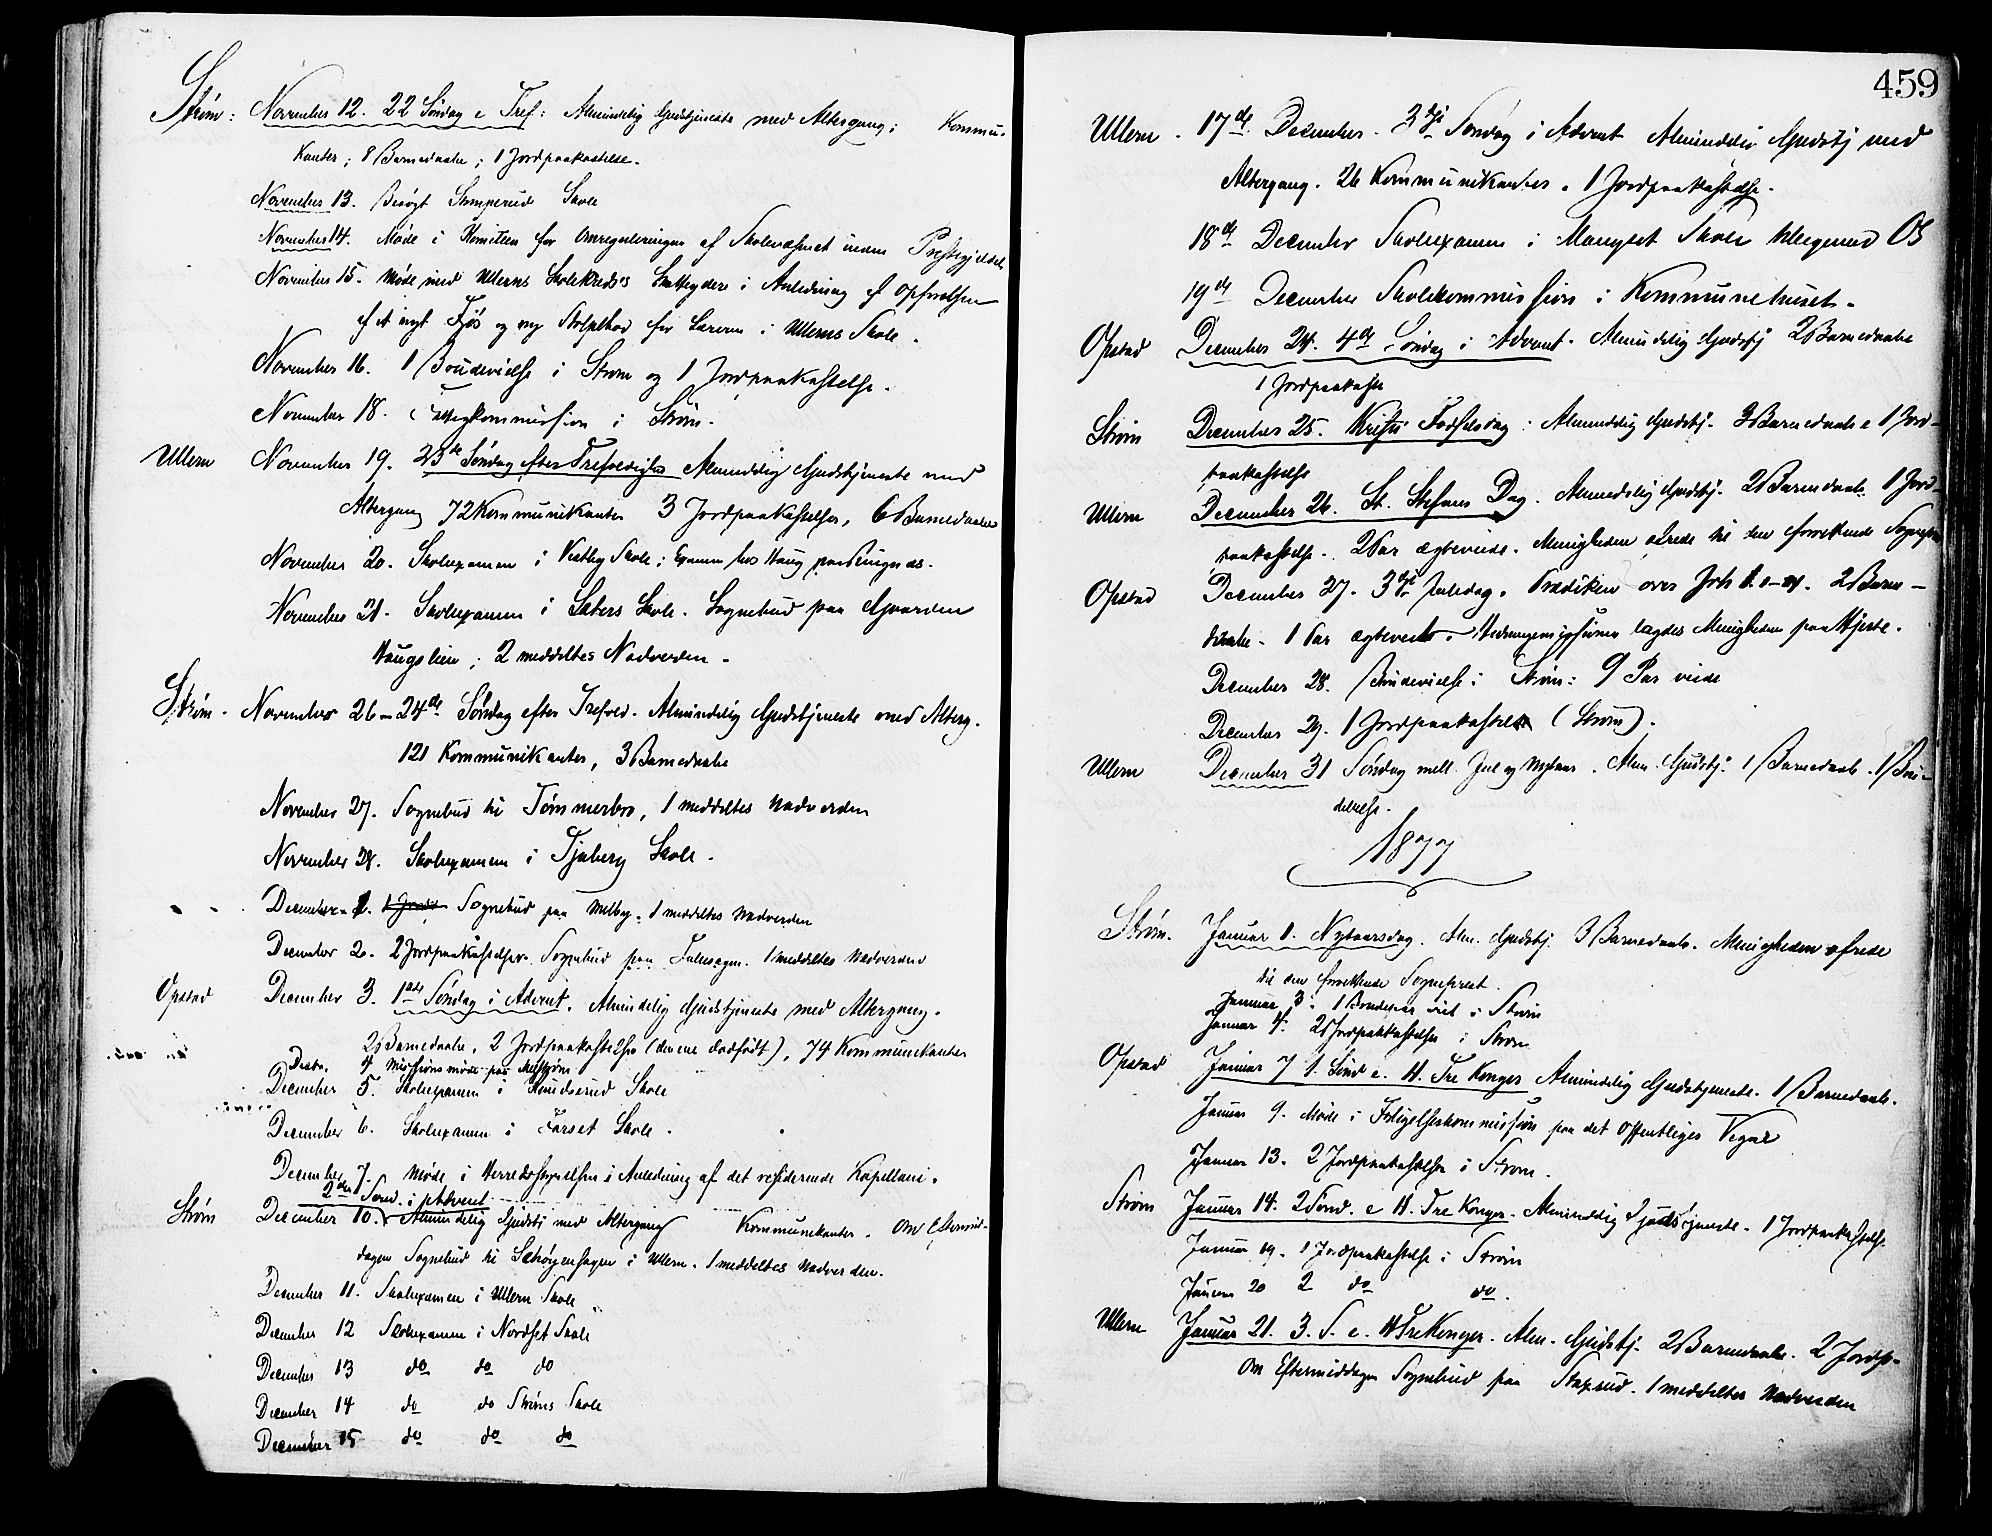 Strøm: November 12. 22 Søndag e Tref: Almindelig Gudstjeneste med Altergang; Kommu-
kanter; 8 Barnedaabe; 1 Jordpaakastelse.
November 13. Besøgt Skole
November 14. Møde i Komiteen for Omreguleringen af Skolevæsenet inden Præstegjeldet
November 15. Møde med Ullerns Skolekreds's Skatteydere i Anledning af Opførelsen
af et nyt Fjøs og ny for Læreren i Ullerns Skole.
November 16. 1 Brudevielse i Strøm og 1 Jordpaakastelse.
November 18. Fattigkommission i Strøm.
Ullern November 19. 23de Søndag efter Trefoldighed Almindelig Gudstjeneste med
Altergang 72 Kommunikanter 3 Jordpaakastelser, 6 Barnedaabe
November 20. Skolexamen i Skole; Examen hos Haug paa
November 21. Skolexamen i Sæters Skole. Sognebud paa Gaarden
Haugslien; 2 meddeltes Nadverden.
Strøm. November 26 – 24de Søndag efter Trefold. Almindelig Gudstjeneste med Alterg.
121 Kommunikanter, 3 Barnedaabe
November 27. Sognebud til Tømmerbro, 1 meddeltes Nadverden
November 28. Skolexamen i Tjaberg Skole.
December 1. 1 Jord Sognebud paa Melby. 1 meddeltes Nadverden
December 2. 2 Jordpaakastelser. Sognebud paa 1 meddeltes Nadverden
Opstad December 3. 1ste Søndag i Advent. Almindelig Gudstjeneste med Altergang.
2 Barnedaabe, 2 Jordpaakastelser (den ene dødfødt), 74 Kommunikanter
Decbr. 4 Missionsmøde paa
December 5. Skolexamen i Knudserud Skole
December 6. Skolexamen i Farset Skole.
December 7. Møde i Herredsstyrelsen i Anledning af det residerende Kapellani.
2den Sønd. i Advent
Strøm December 10. Almindelig Gudstj med Altergang Kommunikanter. Om Eftermid-
dagen Sognebud til i Ullern. 1 meddeltes Nadverden.
December 11. Skolexamen i Ullern Skole
December 12 Skolexamen i Nordset Skole
December 13 do do do
December 14 do do Strøms Skole
December 15 do do do
459
Ullern. 17de December. 3die Søndag i Advent Almindelig Gudstj med
Altergang. 26 Kommunikanter. 1 Jordpaakastelse.
18de December Skolexamen i Mangset Skole
19de December Skolekommission i Kommunehuset.
Opstad December 24. 4de Søndag i Advent. Almindelig Gudstj 2 Barnedaabe
1 Jordpaakaste
Strøm December 25. Kristi Fødselsdag: Almindelig Gudstj. 3 Barnedaab 1 Jord-
paakastelse
Ullern December 26. St. Stefans Dag. Almindelig Gudstj. 2 Barnedaab. 1 Jord-
paakastelse. 2 Par ægteviede. Menigheden ofrede til den forrettende Sognepr
Opstad December 27. 3die Juledag. Prædiken over Joh 2 Barne-
daabe. 1 Par ægteviet. lagdes Menigheden paa Hjerte.
December 28. Brudevielse i Strøm: 9 Par viede
December 29. 1 Jordpaakastelse (Strøm).
Ullern December 31 Søndag mell. Jul og Nytaar. Alm. Gudstj. 1 Barnedaab. 1 Bru-
devielse.
1877
Strøm. Januar 1. Nytaarsdag. Alm. Gudstj. 3 Barnedaab. Menigheden ofrede
til den forrettende Sogneprest.
Januar 3. 1 Brudepar viet i Strøm
Januar 4. 2 Jordpaakastelser i Strøm
Opstad Januar 7 1. Sønd e. H. Tre Konger Almindelig Gudstjeneste. 1 Barnedaab.
Januar 9. Møde i Forligelseskommission paa det Offentliges Vegne
Januar 13. 2 Jordpaakastelse i Strøm.
Strøm Januar 14. 2 Sønd. e H. Tre Konger. Almindelig Gudstjeneste. 1 Jordpaakastelse
Januar 19. 1 Jordpaakastelse i Strøm
Januar 20 2 do do.
Ullern Januar 21. 3. S. e. H Tre Konger. Alm. Gudstj. 2 Barnedaab. 2 Jordp.
Om Eftermiddagen Sognebud paa 1 meddeltes Nadverden